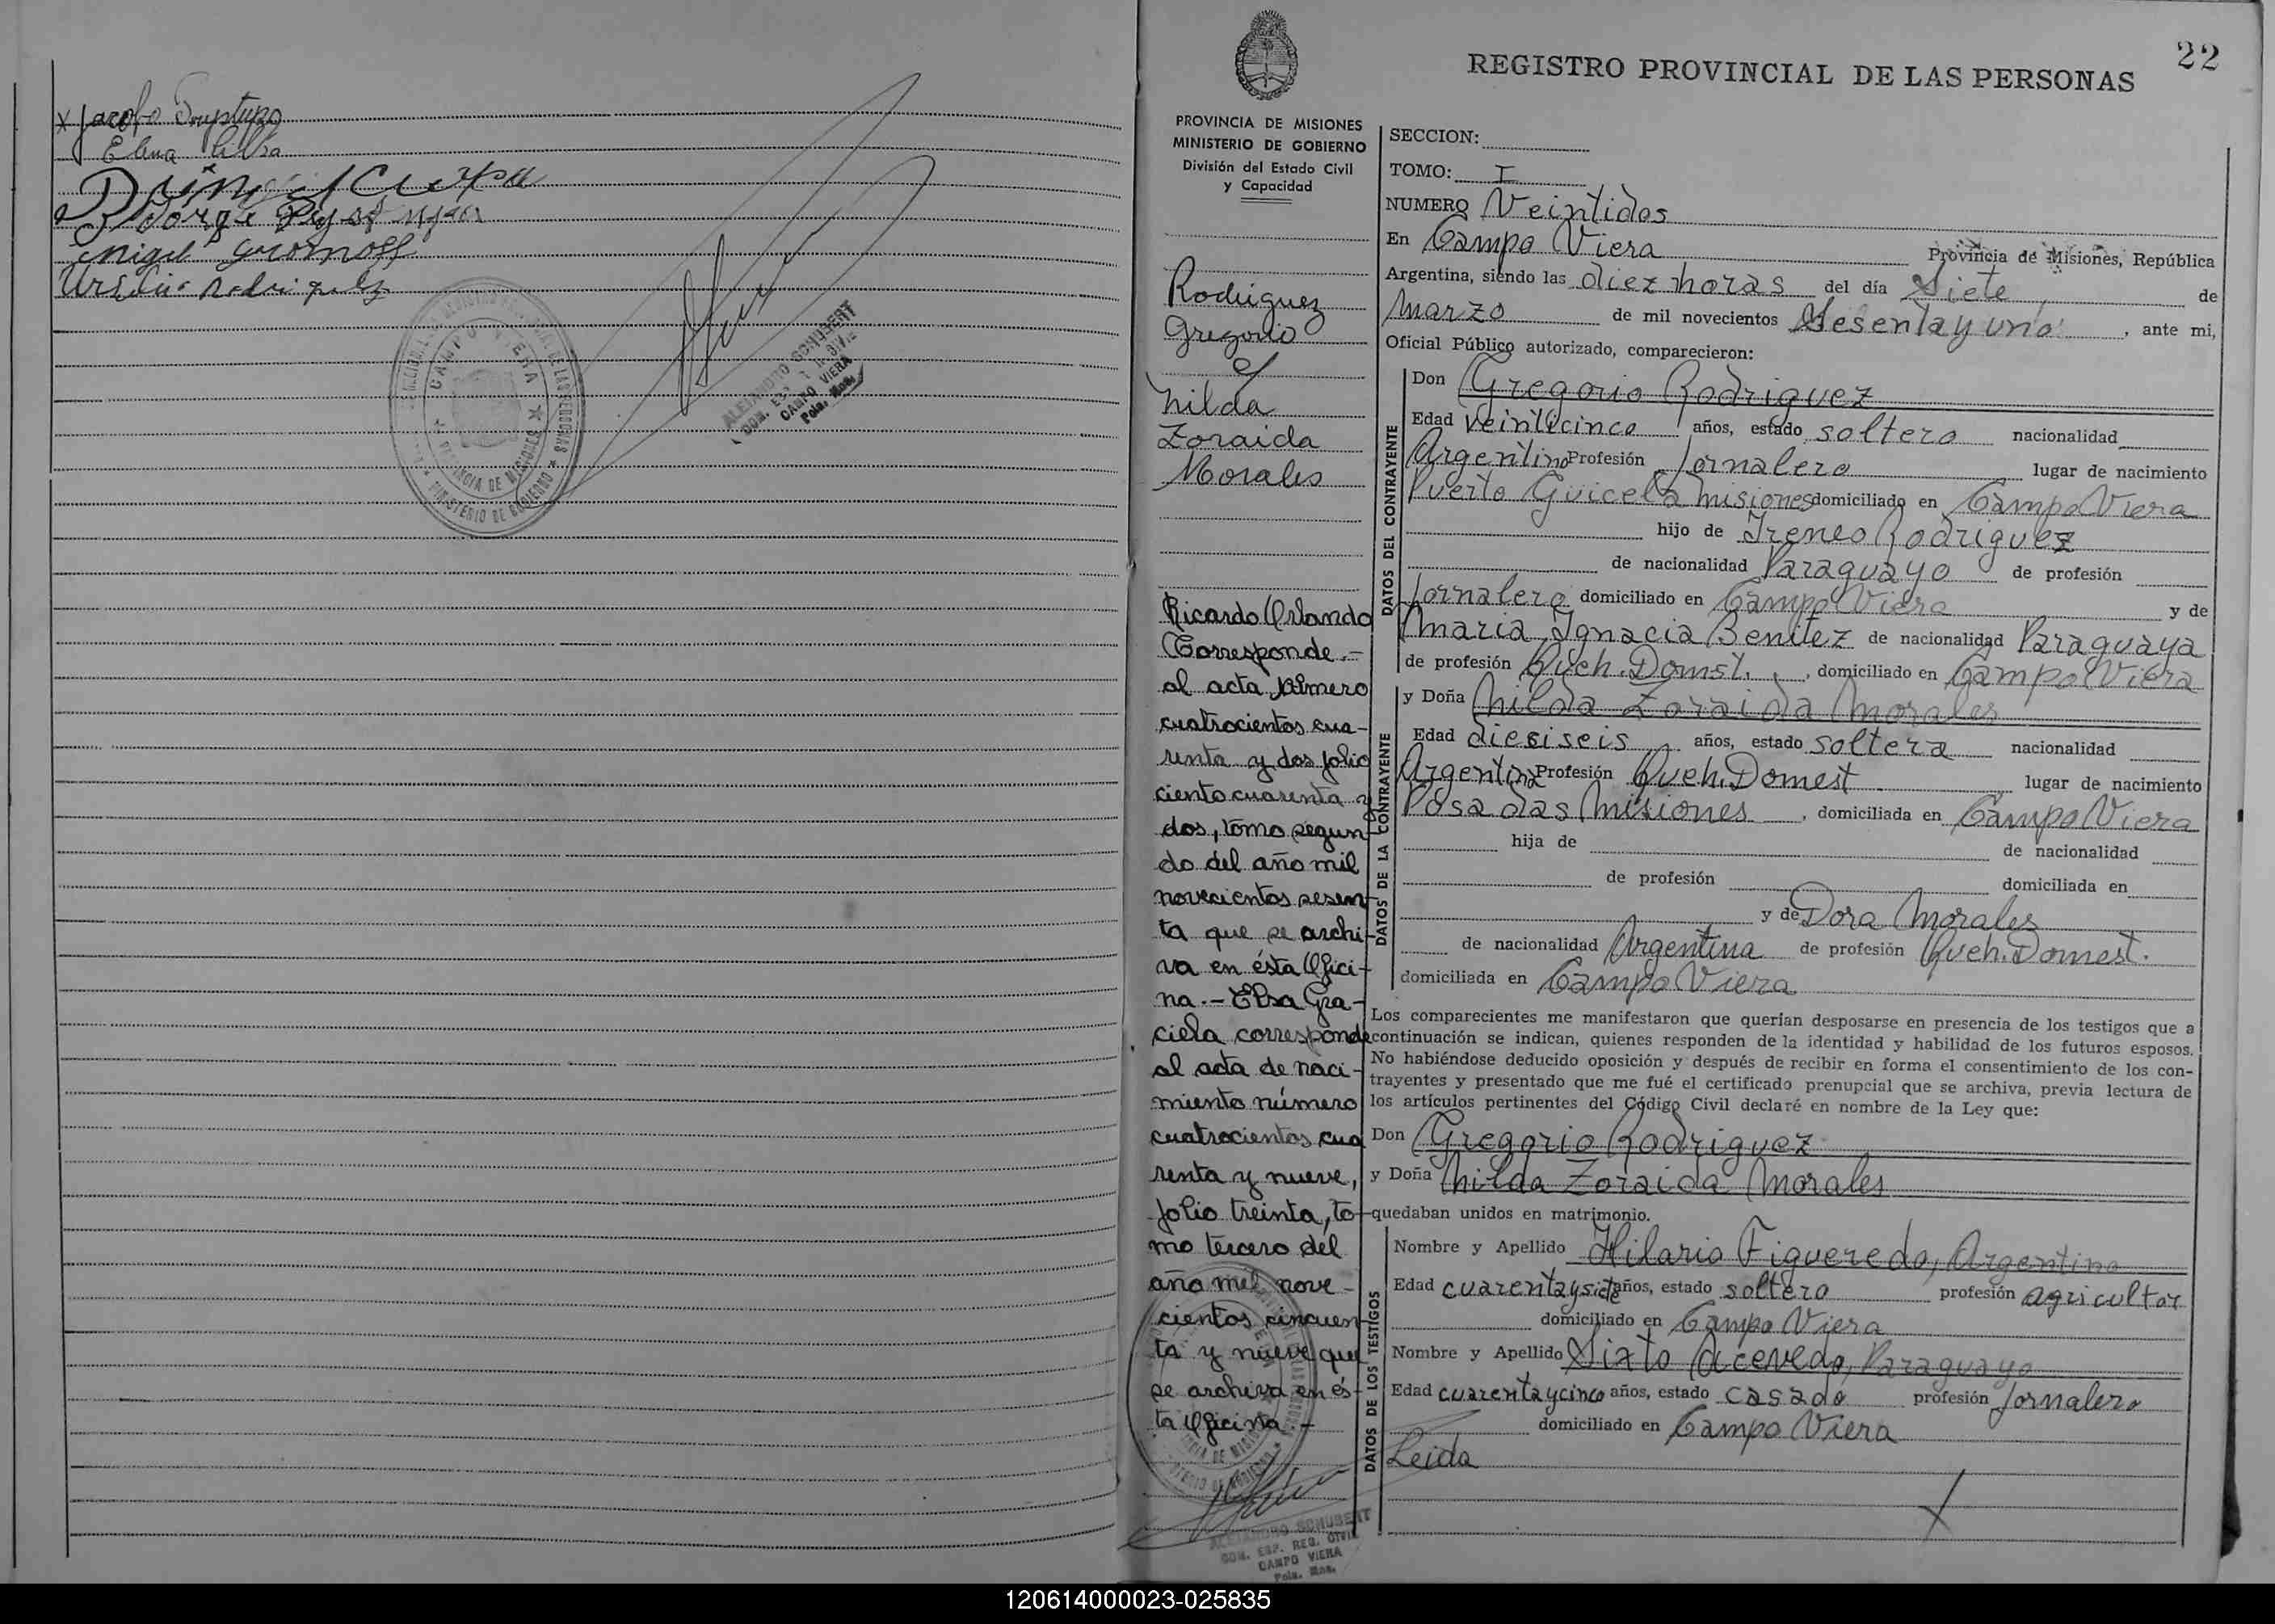 Jacobo
Elena Silva
Jorge
Miguel Gromoff
Rodriguez
CAMPO VIERA
PROVINCIA DE MISIONES
MINISTERIO DE GOBIERNO
ALEJANDRO SCHUBERT
CAMPO VIERA
Pcia. Mnes.
22
REGISTRO PROVINCIAL DE LAS PERSONAS
PROVINCIA DE MISIONES
MINISTERIO DE GOBIERNO
División del Estado Civil
y Capacidad
Rodriguez
Gregorio
y
Nilda
Zoraida
Morales
Ricardo Orlando
Corresponde.-
al acta número
cuatrocientos cua-
renta y dos folio
ciento cuarenta y
dos, tomo segun-
do del año mil
novecientos sesen-
ta que se archi-
va en ésta Ofici-
na.- Elsa Gra-
ciela corresponde
al acta de naci-
miento número
cuatrocientos cua
renta y nueve,
folio treinta, to-
mo tercero del
año mil nove-
cientos cincuen-
ta y nueve que
se archiva en és-
ta Oficina.-
ALEJANDRO SCHUBERT
REG. CIVIL
CAMPO VIERA
Pcia. Mnes.
SECCION:
TOMO: I
NUMERO Veintidos
En Campo Viera Provincia de Misiones, República
Argentina, siendo las diez horas del día Siete de
Marzo de mil novecientos Sesenta y uno, ante mi,
Oficial Público autorizado, comparecieron:
DATOS DEL CONTRAYENTE
Don Gregorio Rodriguez
Edad Veinticinco años, estado soltero nacionalidad
Argentino Profesión Jornalero lugar de nacimiento
Puerto Misiones domiciliado en Campo Viera
hijo de Ireneo Rodriguez
de nacionalidad Paraguayo de profesión
Jornalero domiciliado en Campo Viera y de
Maria Ignacia Benitez de nacionalidad Paraguaya
de profesión Queh. Domst., domiciliado en Campo Viera
DATOS DE LA CONTRAYENTE
y Doña Nilda Zoraida Morales
Edad dieciseis años, estado soltera nacionalidad
Argentina Profesión Queh. Domest lugar de nacimiento
Posadas Misiones, domiciliada en Campo Viera
hija de de nacionalidad
de profesión domiciliada en
y de Dora Morales
de nacionalidad Argentina de profesión Queh. Domest.
domiciliada en Campo Viera
Los comparecientes me manifestaron que querían desposarse en presencia de los testigos que a
continuación se indican, quienes responden de la identidad y habilidad de los futuros esposos.
No habiéndose deducido oposición y después de recibir en forma el consentimiento de los con-
trayentes y presentado que me fué el certificado prenupcial que se archiva, previa lectura de
los artículos pertinentes del Código Civil declaré en nombre de la Ley que:
Don Gregorio Rodriguez
y Doña Nilda Zoraida Morales
quedaban unidos en matrimonio.
DATOS DE LOS TESTIGOS
Nombre y Apellido Hilario Figueredo, Argentino
Edad cuarenta y siete años, estado soltero profesión agricultor
domiciliado en Campo Viera
Nombre y Apellido Sixto Acevedo, Paraguayo
Edad cuarenta y cinco años, estado casado profesión Jornalero
domiciliado en Campo Viera
Leida
120614000023-025835